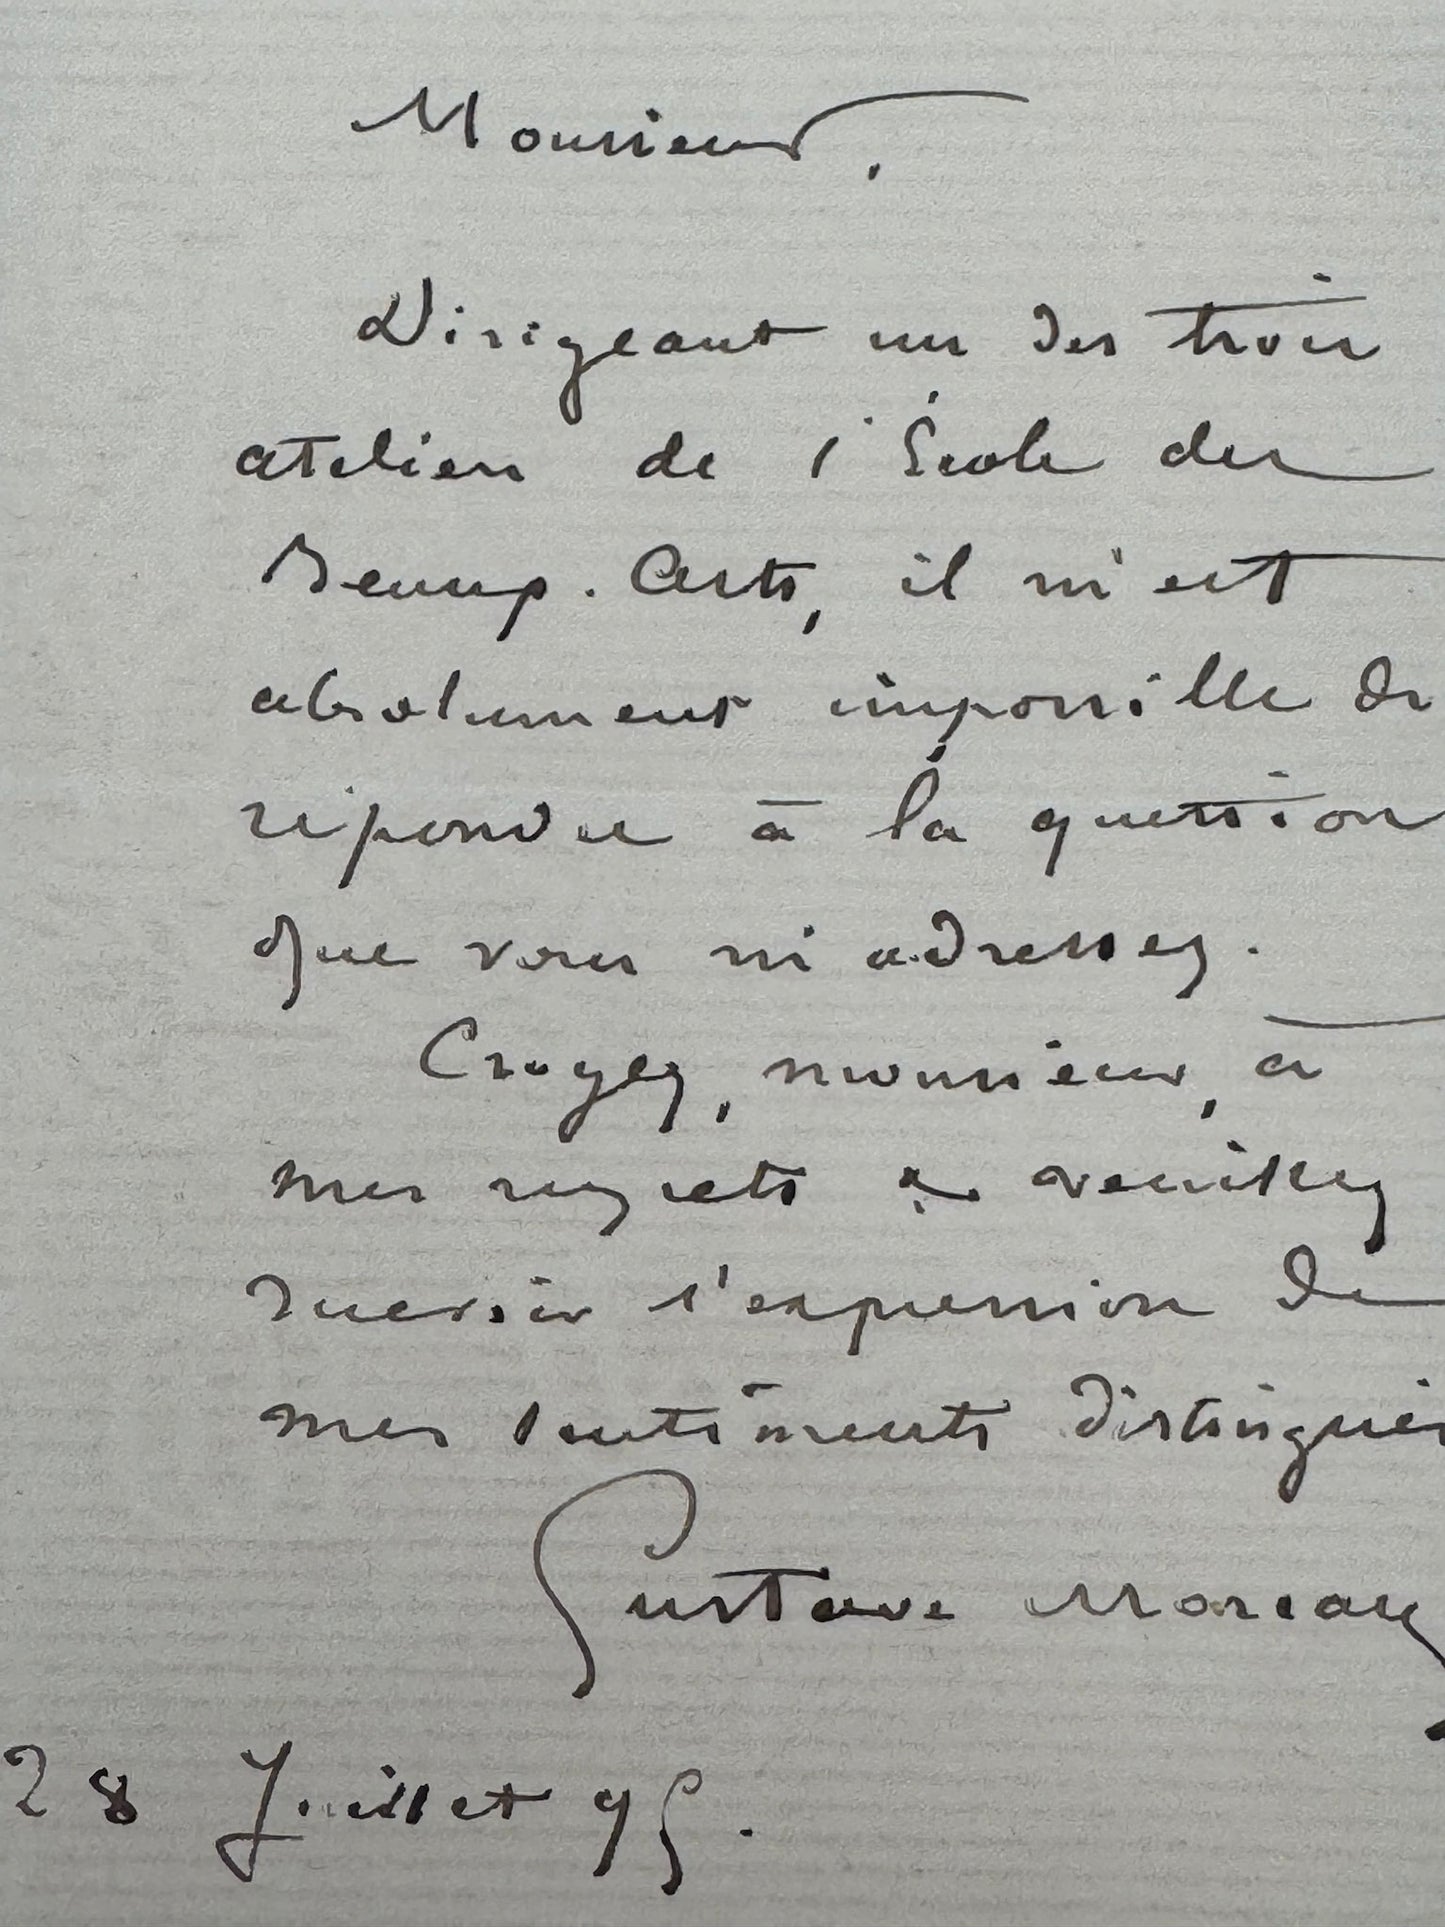 Monsieur,
Dirigeant un des trois
ateliers de l'École des
Beaux-Arts, il m'est
absolument impossible de
répondre à la question
que vous m'adressez.
Croyez, monsieur, à
mes regrets & veuillez
recevoir l'expression de
mes sentiments distingués
Gustave Moreau
28 Juillet 95.